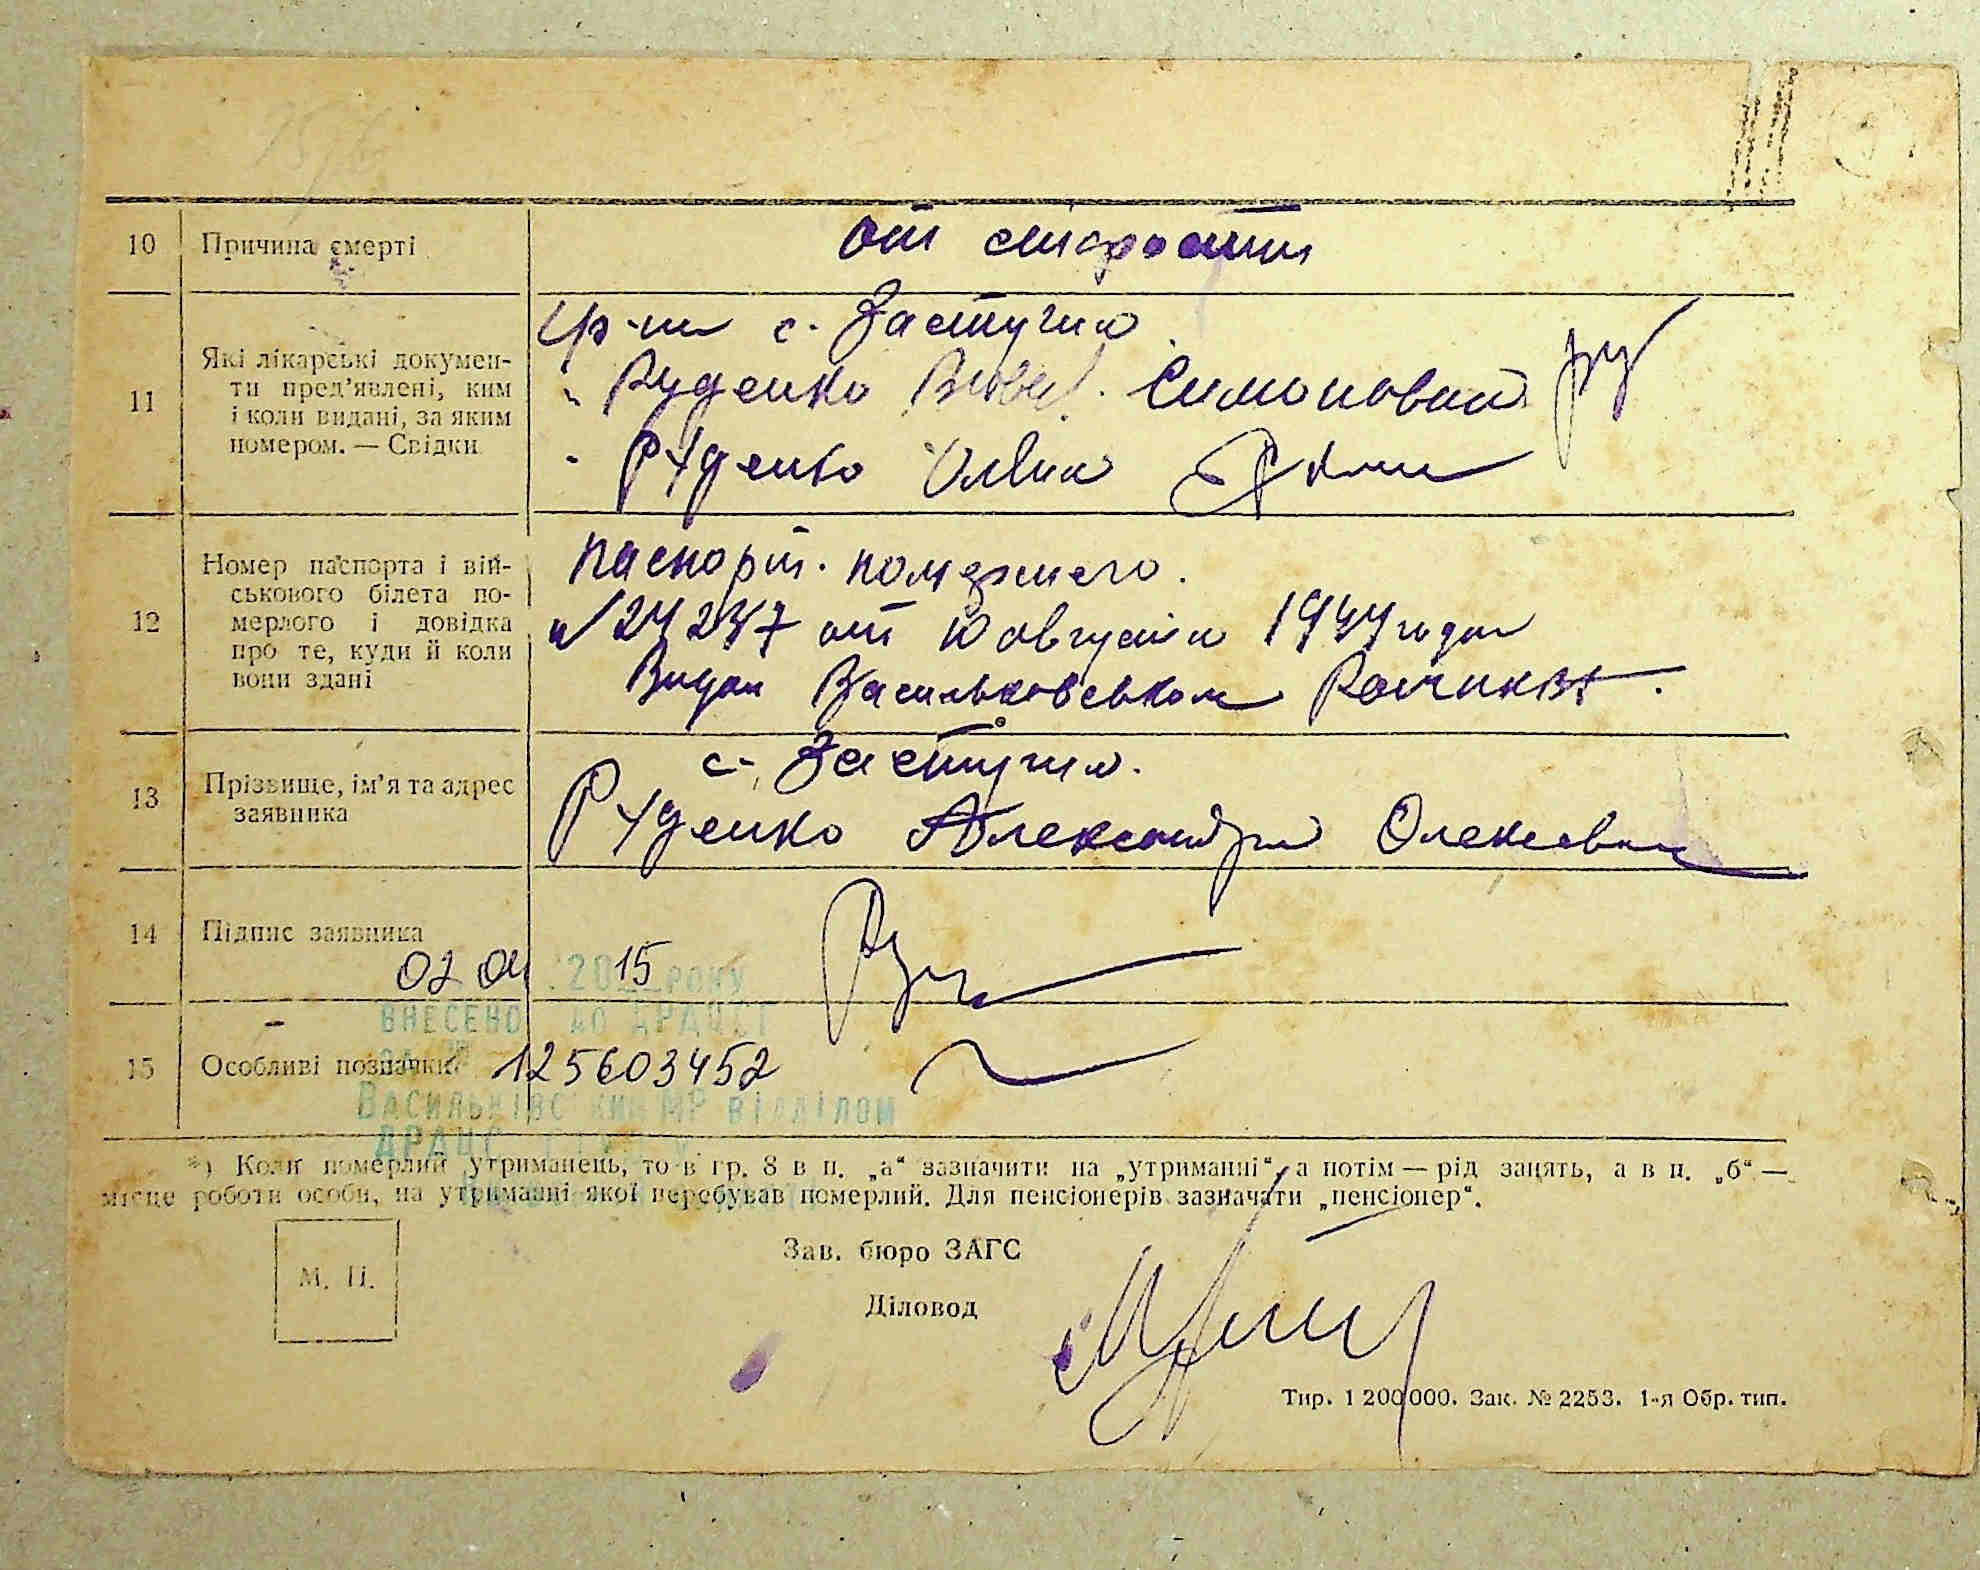 10 Причина смерті
от старости
11 Які лікарські докумен-
ти пред’явлені, ким
і коли видані, за яким
номером. — Свідки
Гр-не с. Застугна
" Руденко Симонович
" Руденко
12 Номер паспорта і вій-
ськового білета по-
мерлого і довідка
про те, куди й коли
вони здані
паспорт. помершего.
№ 24237 от 10 августа 1944 года
Видан Васильковським
13 Прізвище, ім’я та адрес
заявника
с. Застугна.
Руденко Александра
14 Підпис заявника
02 04 2015 РОКУ
ВНЕСЕНО ДО ДРАЦСГ
ЗА №
15 Особливі позначки 125603452
ВАСИЛЬКІВСЬКИМ МР ВІДДІЛОМ
ДРАЦС
*) Коли померлий утриманець, то в гр. 8 в п. „а“ зазначити на „утриманні“, а потім — рід занять, а в п. „б“ —
місце роботи особи, на утриманні якої перебував померлий. Для пенсіонерів зазначати „пенсіонер“.
Зав. бюро ЗАГС
М. П.
Діловод
Тир. 1 200 000. Зак. № 2253. 1-я Обр. тип.